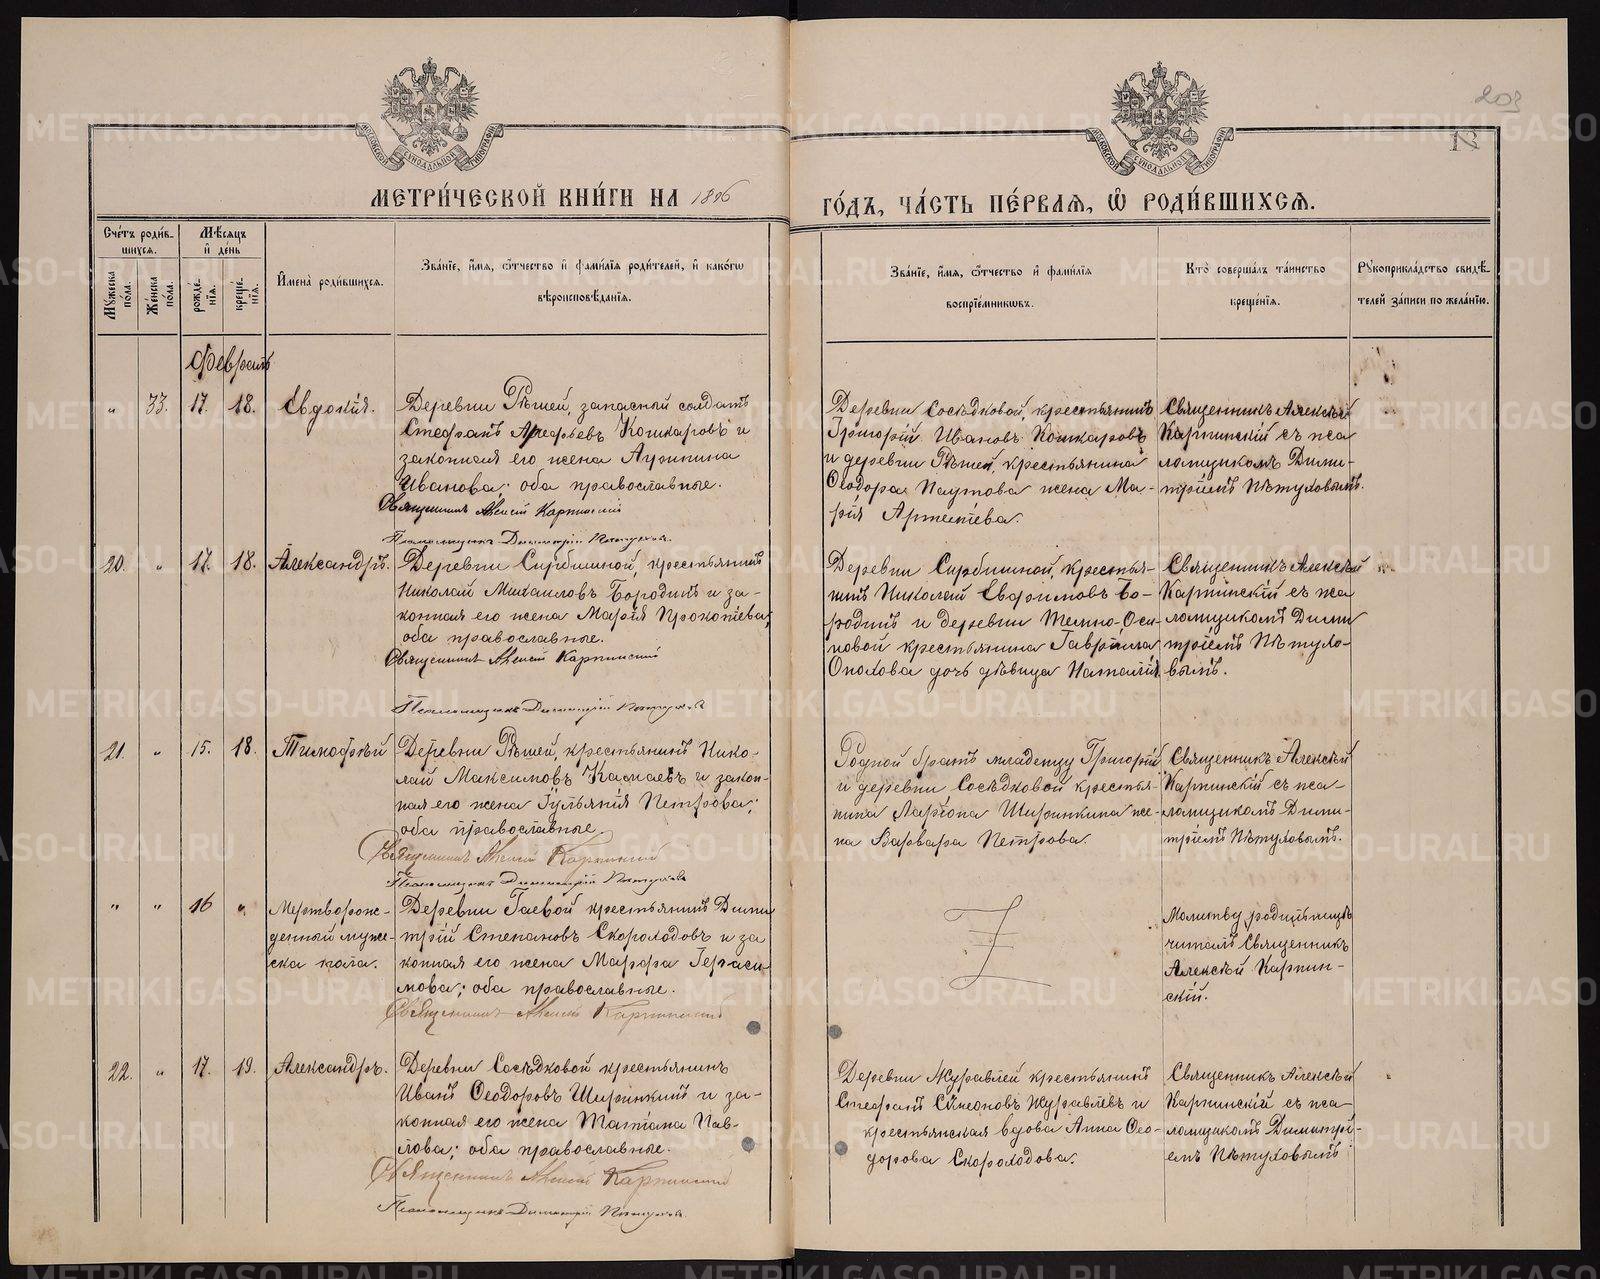 203
12
МОСКОВСКОЙ СѴНОДАЛЬНОЙ ТИПОГРАФІИ
МОСКОВСКОЙ СѴНОДАЛЬНОЙ ТИПОГРАФІИ
МЕТРИ́ЧЕСКОЙ КНИ́ГИ НА 1896
ГО́ДЪ, ЧА́СТЬ ПЕ́РВАѦ, Ѡ҆ РОДИ́ВШИХСѦ.
Сче́тъ роди́в-
шихсѧ.
Мꙋ́жеска по́ла.
Же́нска по́ла.
Мѣ́сѧцъ
и҆ де́нь
рожде́-
нїѧ.
креще́-
нїѧ.
И҆мена̀ роди́вшихсѧ.
Зва́нїе, и҆́мѧ, ѻ҆́тчество и҆ фами́лїѧ роди́телей, и҆ како́гѡ
вѣроисповѣ́данїѧ.
Зва́нїе, и҆́мѧ, ѻ҆́тчество и҆ фами́лїѧ
воспрїе́мникѡвъ.
Кто̀ соверша́лъ та́инство
креще́нїѧ.
Рꙋкоприкла́дство свидѣ́-
телей за́писи по жела́нїю.
Февраль
" 33. 17. 18. Евдокія.
Деревни Рѣшей, запасный солдатъ
Стефанъ Арефьевъ Кошкаровъ и
законная его жена Агрипина
Иванова; оба православные.
Священникъ Алексій Карпинскій
Псаломщикъ Димитрій Пѣтуховъ.
Деревни Сосѣдковой, крестьянинъ
Григорій Ивановъ Кошкаровъ
и деревни Рѣшей, крестьянина
Ѳеодора Паутова жена Ма-
рія Артеміева.
Священникъ Алексѣй
Карпинскій съ пса
ломщикомъ Дими-
тріемъ Пѣтуховымъ.
20. " 17. 18. Александръ.
Деревни Сирбишной, крестьянинъ
Николай Михаиловъ Бородинъ и за-
конная его жена Марія Прокопіева;
оба православные.
Священникъ Алексій Карпинскій
Псаломщикъ Димитрій Пѣтуховъ
Деревни Сирбишной, крестья-
нинъ Николай Евфимовъ Бо-
родинъ и деревни Темно-Оси-
новой крестьянина Гавріила
Опохова дочь дѣвица Наталія.
Священникъ Алексѣй
Карпинскій съ пса
ломщикомъ Дими
тріемъ Пѣтухо-
вымъ.
21. " 15. 18. Тимофѣй
Деревни Рѣшей, крестьянинъ Нико-
лай Максимовъ Камаевъ и закон-
ная его жена Іульянія Петрова;
оба православные.
Священникъ Алексій Карпинскій
Псаломщикъ Димитрій Пѣтуховъ
Родной братъ младенцу Григорій
и деревни Сосѣдковой крестья-
нина Ларіона Ширинкина же-
на Варвара Петрова.
Священникъ Алексѣй
Карпинскій съ пса-
ломщикомъ Дими-
тріемъ Пѣтуховымъ.
" " 16 " Мертворож-
денный муже-
ска пола.
Деревни Гаевой крестьянинъ Дими
трій Степановъ Скороходовъ и за
конная его жена Марфа Гераси-
мова; оба православные.
Священникъ Алексій Карпинскій
Молитву родильницѣ
читалъ Священникъ
Алексѣй Карпин-
скій.
22. " 17. 19. Александръ.
Деревни Сосѣдковой крестьянинъ
Иванъ Ѳеодоровъ Ширинкинъ и за-
конная его жена Татіана Пав-
лова; оба православные.
Священникъ Алексій Карпинскій
Псаломщикъ Димитрій Пѣтуховъ.
Деревни Журавлей крестьянинъ
Стефанъ Сѵмеоновъ Журавлевъ и
крестьянская вдова Анна Ѳео-
дорова Скороходова.
Священникъ Алексѣй
Карпинскій съ пса-
ломщикомъ Димитрі-
емъ Пѣтуховымъ
METRIKI.GASO-URAL.RU